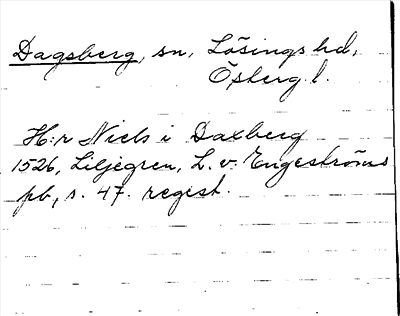 Dagsberg, sn, Lösings hd,
Östergl.
H:r Niels i Daxberg
1526, Liljegren, L. v. Engeströms
pb, s. 47. regist.